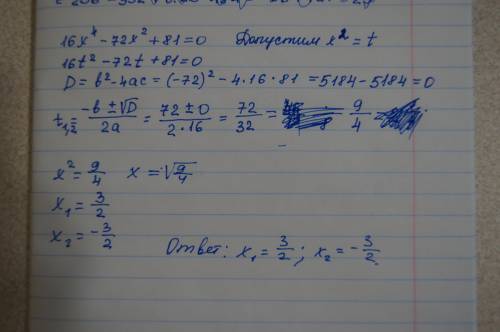 16x⁴ - 72x² + 81 = 0 Допустим x² = t
16t² - 72t + 81 = 0
D = b² - 4ac = (-72)² - 4·16·81 = 5184 - 5184 = 0
t₁,₂ = (-b ± √D)/2a = (72 ± 0)/(2·16) = 72/32 = 9/4
x² = 9/4 x = √(9/4)
x₁ = 3/2
x₂ = -3/2
Ответ: x₁ = 3/2; x₂ = -3/2.